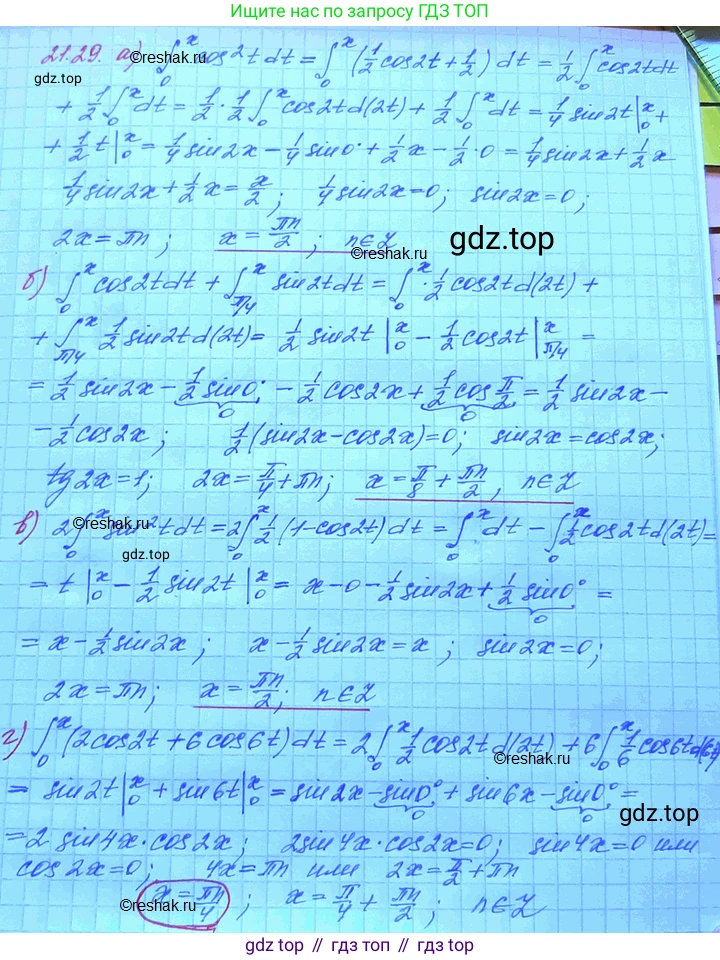 Ищите нас по запросу ГДЗ ТОП
21.29. а) ∫₀ˣ cos²t dt = ∫₀ˣ (½cos2t + ½) dt = ½∫₀ˣ cos2tdt
©reshak.ru
gdz.top
+ ½∫₀ˣ dt = ½·½∫₀ˣ cos2td(2t) + ½∫₀ˣ dt = ¼sin2t|₀ˣ +
+ ½t|₀ˣ = ¼sin2x − ¼sin0° + ½x − ½·0 = ¼sin2x + ½x
¼sin2x + ½x = x/2; ¼sin2x = 0; sin2x = 0;
2x = πn; x = πn/2; n∈Z
gdz.top
©reshak.ru
б) ∫₀ˣ cos2tdt + ∫_{π/4}^x sin2tdt = ∫₀ˣ ½cos2td(2t) +
+ ∫_{π/4}^x ½sin2td(2t) = ½sin2t|₀ˣ − ½cos2t|_{π/4}^x =
= ½sin2x − ½sin0° − ½cos2x + ½cos π/2 = ½sin2x −
0 0
− ½cos2x; ½(sin2x − cos2x) = 0; sin2x = cos2x;
tg2x = 1; 2x = π/4 + πn; x = π/8 + πn/2, n∈Z
в) 2∫₀ˣ sin²tdt = 2∫₀ˣ ½(1 − cos2t)dt = ∫₀ˣ dt − ∫₀ˣ ½cos2td(2t) =
©reshak.ru
gdz.top
= t|₀ˣ − ½sin2t|₀ˣ = x − 0 − ½sin2x + ½sin0° =
0
= x − ½sin2x; x − ½sin2x = x; sin2x = 0;
2x = πn; x = πn/2; n∈Z
г) ∫₀ˣ (2cos2t + 6cos6t)dt = 2∫₀ˣ ½cos2td(2t) + 6∫₀ˣ ⅙cos6td(6t)
©reshak.ru
= sin2t|₀ˣ + sin6t|₀ˣ = sin2x − sin0° + sin6x − sin0° =
0 0
gdz.top
= 2sin4x·cos2x; 2sin4x·cos2x = 0; sin4x = 0 или
cos2x = 0; 4x = πn или 2x = π/2 + πn
x = πn/4; x = π/4 + πn/2; n∈Z
©reshak.ru
©reshak.ru
gdz.top // гдз.топ // gdz.top // гдз.топ